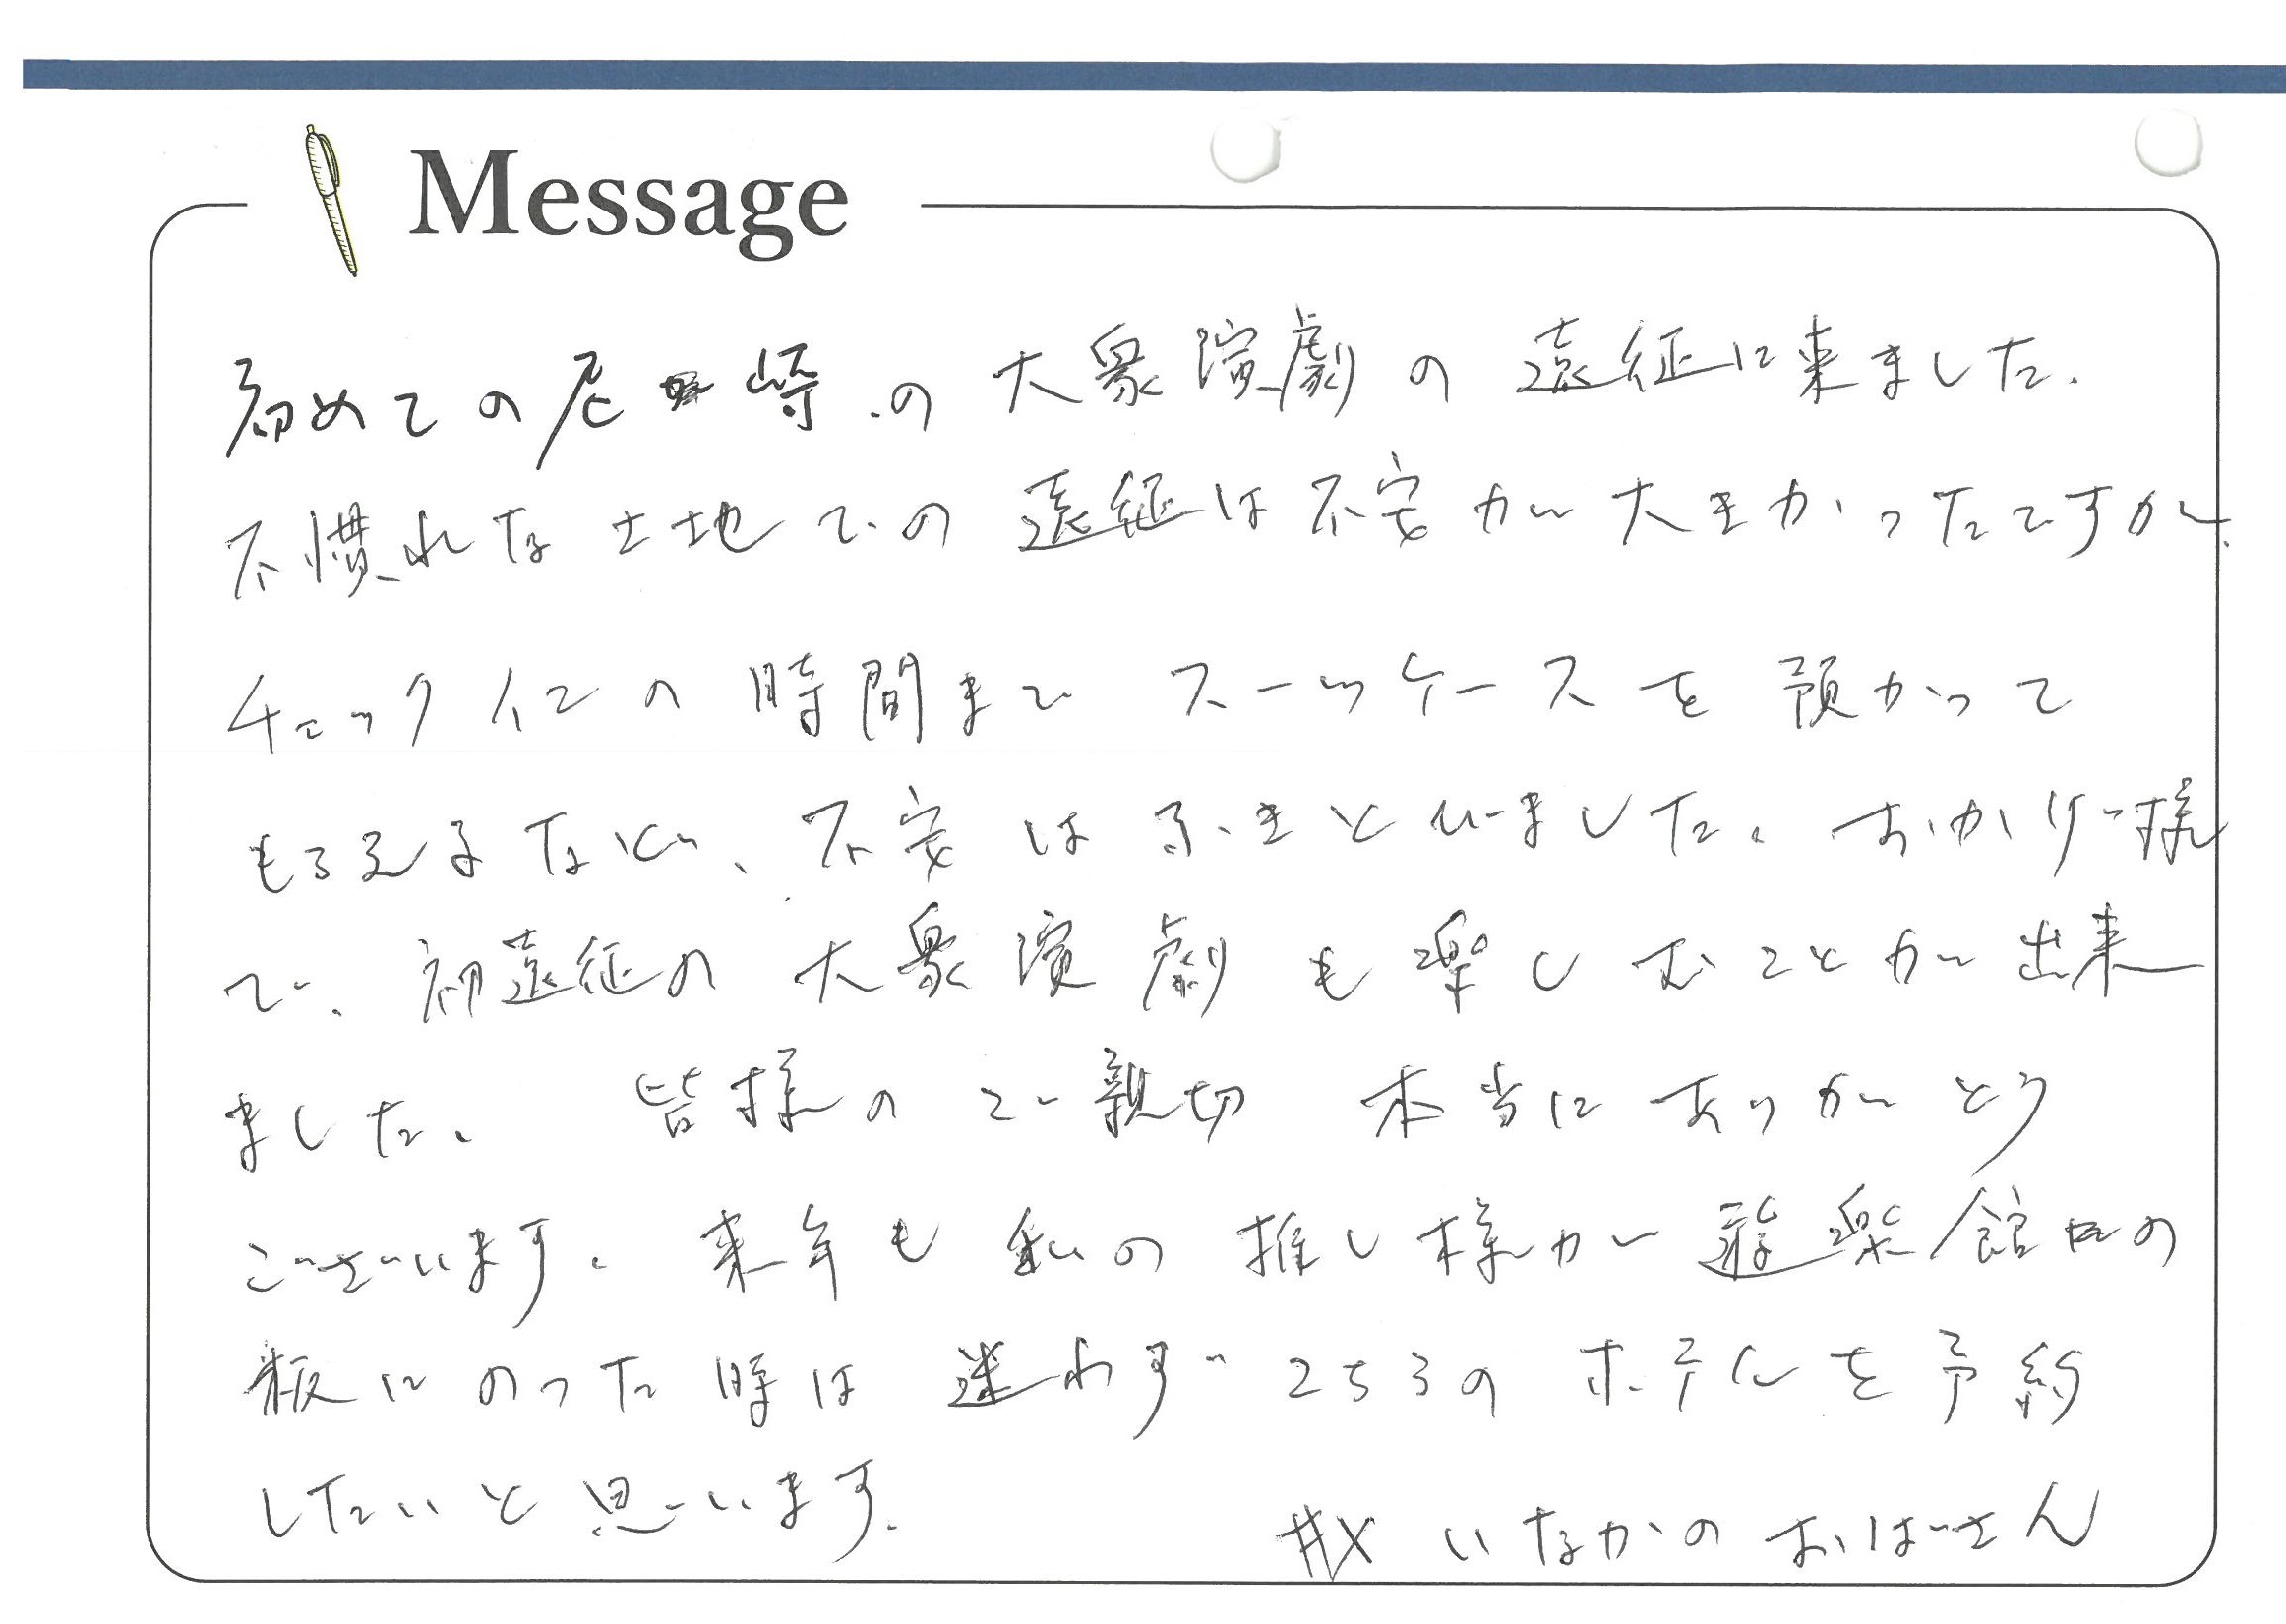 Message
初めての尼崎の大衆演劇の遠征に来ました。
不慣れな土地での遠征は不安が大きかったですが、
チェックインの時間まで スーツケースを預かって
もらえるなど、不安はふきとびました。おかげ様
で、初遠征の大衆演劇も楽しむことが出来
ました。 皆様のご親切 本当にありがとう
ございます。来年も私の推し様が遊楽館の
板にのった時は迷わずこちらのホテルを予約
したいと思います。
いなかのおばさん